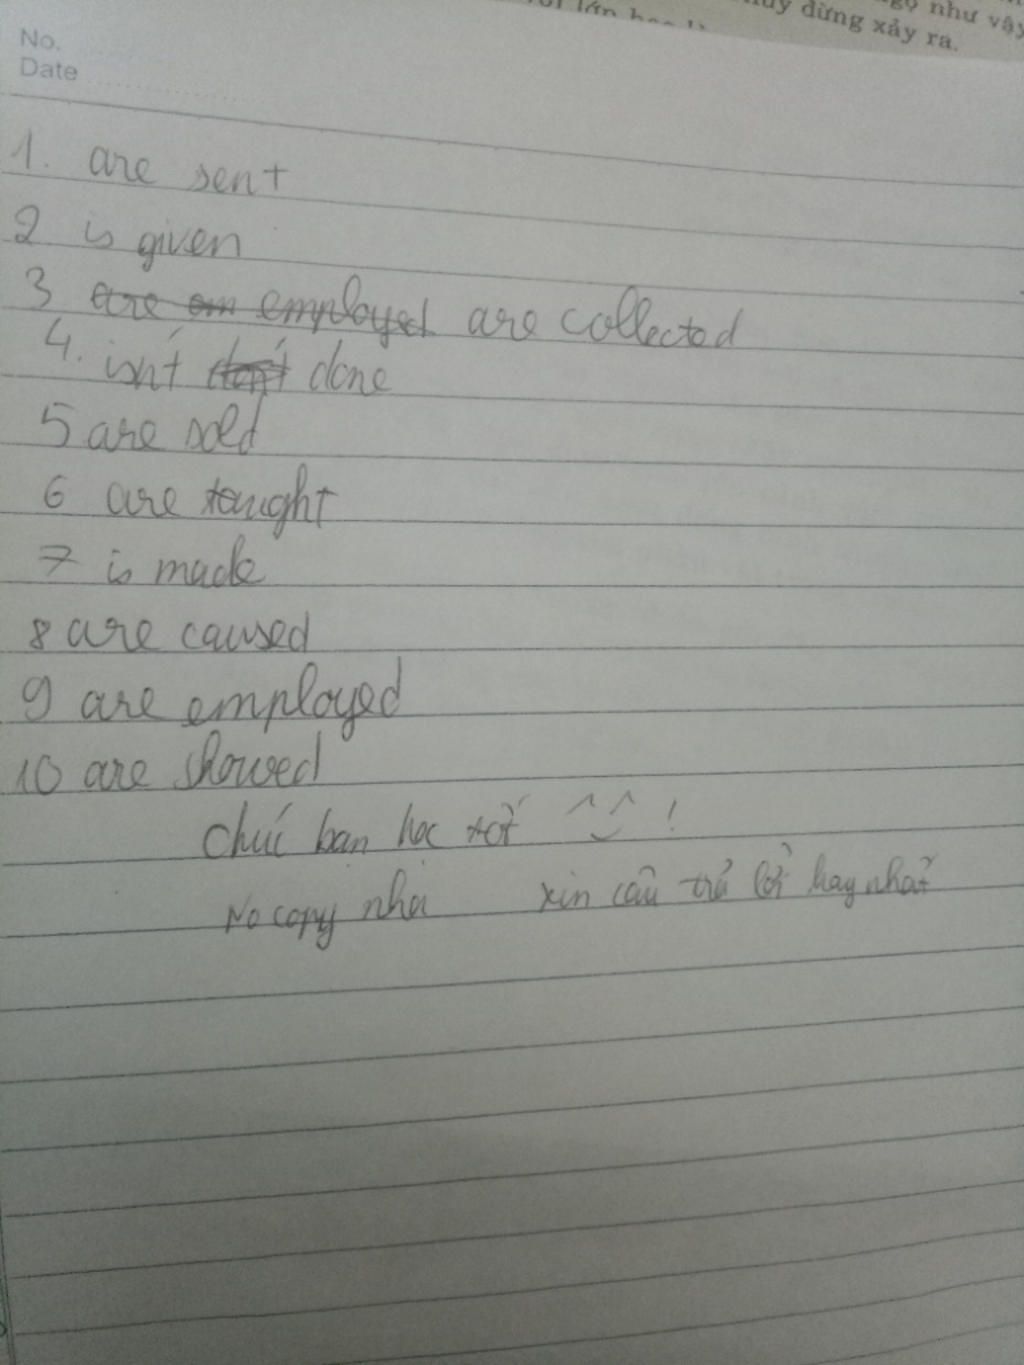 ngộ như vậy
hủy đừng xảy ra.
No.
Date
1. are sent
2 is given
3 are em employed are collected
4. isn't don't done
5 are sold
6 are taught
7 is made
8 are caused
9 are employed
10 are showed
Chúc bạn học tốt ^^ !
No copy nha xin câu trả lời hay nhất